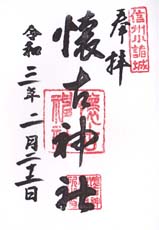 奉拝
信州小諸城
懐古神社
令和三年二月二十三日